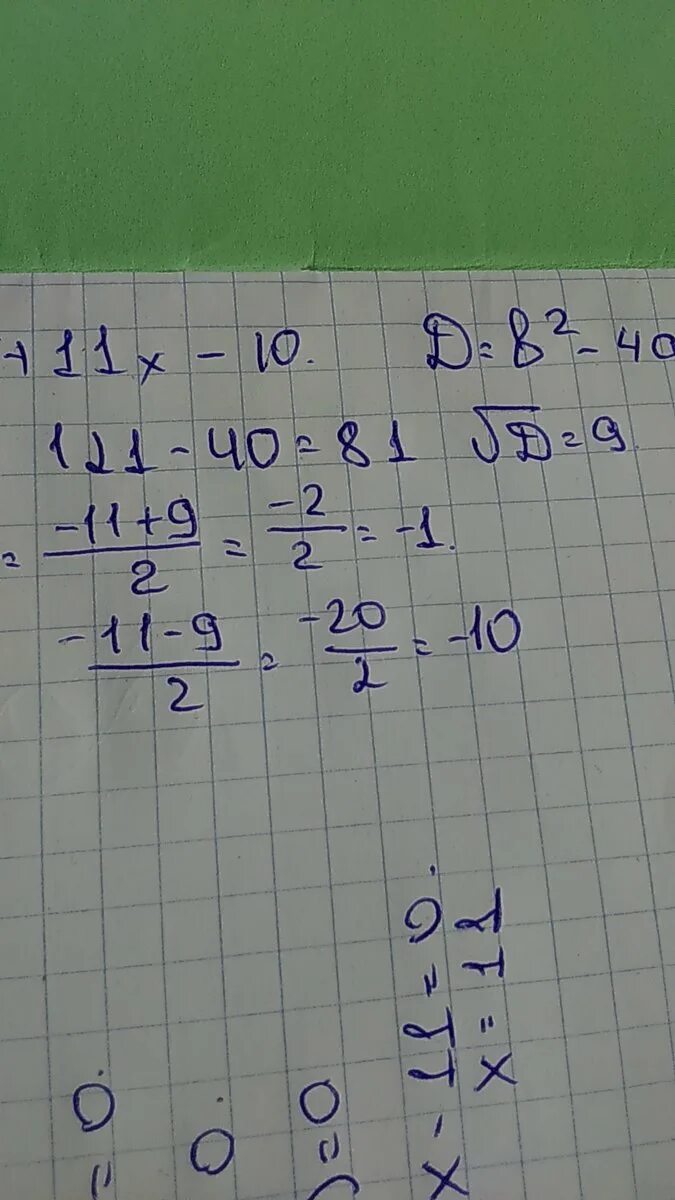 +11x - 10. D = b² - 40
121 - 40 = 81 √D = 9
= (-11+9)/2 = -2/2 = -1.
(-11-9)/2 = -20/2 = -10
x - 11 = 0.
x = 11
= 0.
0.
) = 0